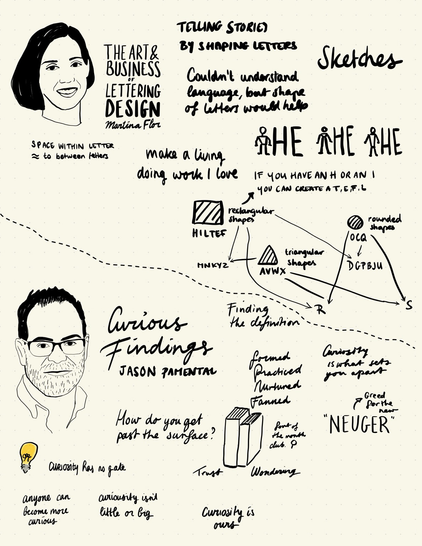 THE ART &
BUSINESS
OF
LETTERING
DESIGN
Martina Flor
TELLING STORIES
BY SHAPING LETTERS
Sketches
Couldn't understand
language, but shape
of letters would help
HE HE HE
SPACE WITHIN LETTER
≈ to between letters
make a living
doing work I love
IF YOU HAVE AN H OR AN I
YOU CAN CREATE A T, E, F, L
rectangular
shapes
HILTEF
rounded
shapes
OCQ
triangular
shapes
AVWX
MNKYZ
DGPBJU
R
S
Finding
the definition
Curious
Findings
JASON PAMENTAL
formed
Practiced
Nurtured
Fanned
Curiosity
is what sets
you apart
Greed
for the
new
"NEUGER"
How do you get
past the surface?
Part of
the month
club
Trust
Wondering
Curiosity has no gate
anyone can
become more
curious
curiosity isn't
little or big
Curiosity is
ours